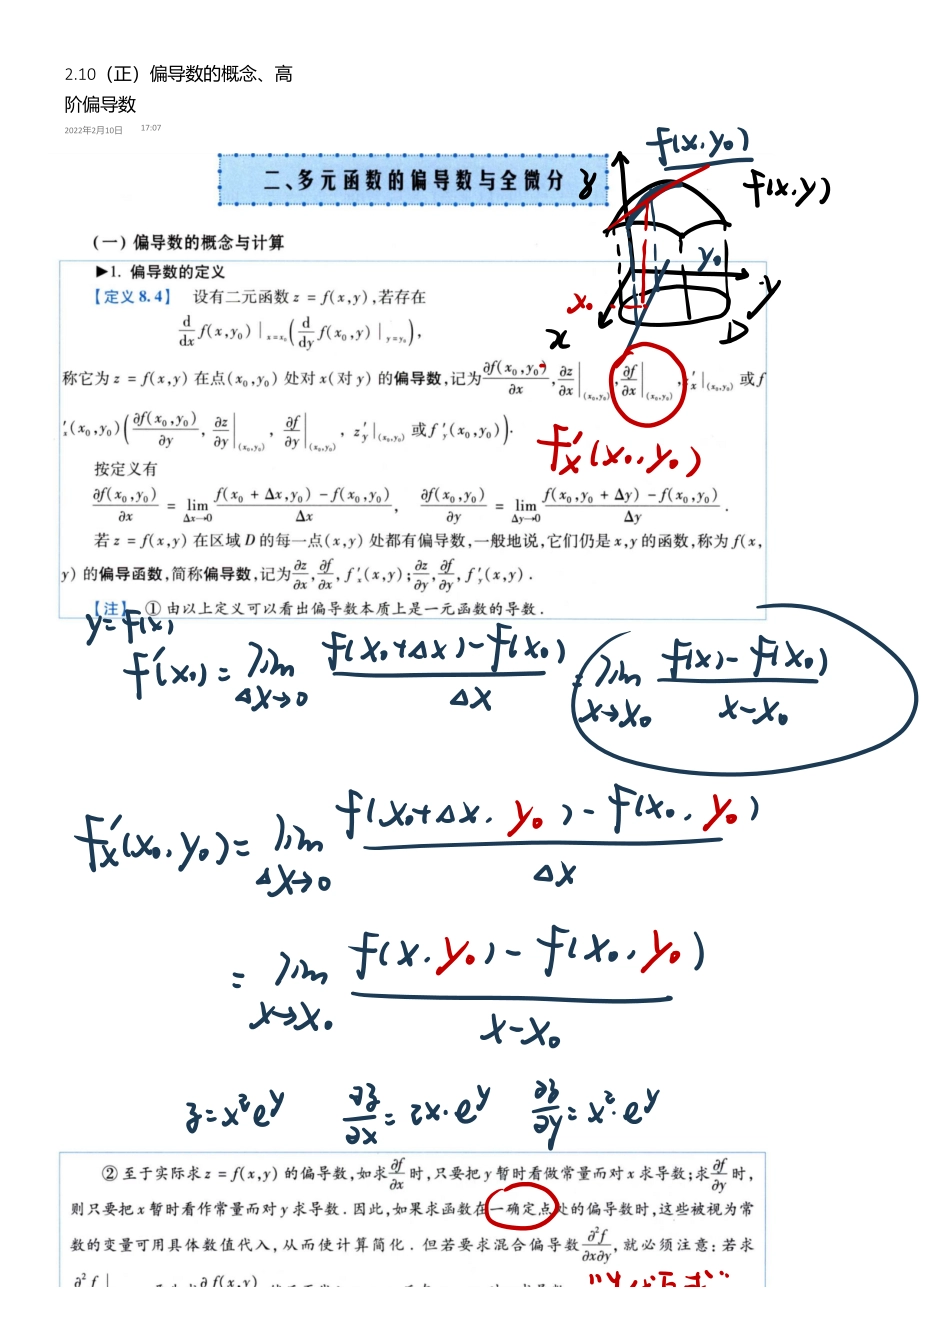 2.10（正）偏导数的概念、高
阶偏导数
2022年2月10日 17:07
二、多元函数的偏导数与全微分
f(x,y₀)
f(x,y)
z
y₀
x₀
y
x
D
(一) 偏导数的概念与计算
▶1. 偏导数的定义
【定义8.4】 设有二元函数 z = f(x,y),若存在
d/dx f(x,y₀)|x=x₀ (d/dy f(x₀,y)|y=y₀),
称它为 z = f(x,y) 在点(x₀,y₀) 处对 x(对 y) 的偏导数,记为 ∂f(x₀,y₀)/∂x, ∂z/∂x|(x₀,y₀), ∂f/∂x|(x₀,y₀), z′x|(x₀,y₀) 或 f
′x(x₀,y₀)(∂f(x₀,y₀)/∂y, ∂z/∂y|(x₀,y₀), ∂f/∂y|(x₀,y₀), z′y|(x₀,y₀) 或 f′y(x₀,y₀)).
f′x(x₀,y₀)
按定义有
∂f(x₀,y₀)/∂x = lim Δx→0 (f(x₀ + Δx,y₀) - f(x₀,y₀))/Δx, ∂f(x₀,y₀)/∂y = lim Δy→0 (f(x₀,y₀ + Δy) - f(x₀,y₀))/Δy.
若 z = f(x,y) 在区域 D 的每一点(x,y) 处都有偏导数,一般地说,它们仍是 x,y 的函数,称为 f(x,
y) 的偏导函数,简称偏导数,记为 ∂z/∂x, ∂f/∂x, f′x(x,y); ∂z/∂y, ∂f/∂y, f′y(x,y).
【注】 ① 由以上定义可以看出偏导数本质上是一元函数的导数.
y=f(x)
f′(x₀) = lim Δx→0 (f(x₀+Δx)-f(x₀))/Δx = lim x→x₀ (f(x)-f(x₀))/(x-x₀)
f′x(x₀,y₀) = lim Δx→0 (f(x₀+Δx, y₀)-f(x₀, y₀))/Δx
= lim x→x₀ (f(x,y₀)-f(x₀,y₀))/(x-x₀)
z=x²eʸ ∂z/∂x = 2x·eʸ ∂z/∂y = x²·eʸ
② 至于实际求 z = f(x,y) 的偏导数,如求 ∂f/∂x 时,只要把 y 暂时看做常量而对 x 求导数;求 ∂f/∂y 时,
则只要把 x 暂时看作常量而对 y 求导数.因此,如果求函数在一确定点处的偏导数时,这些被视为常
数的变量可用具体数值代入,从而使计算简化.但若要求混合偏导数 ∂²f/∂x∂y,就必须注意:若求